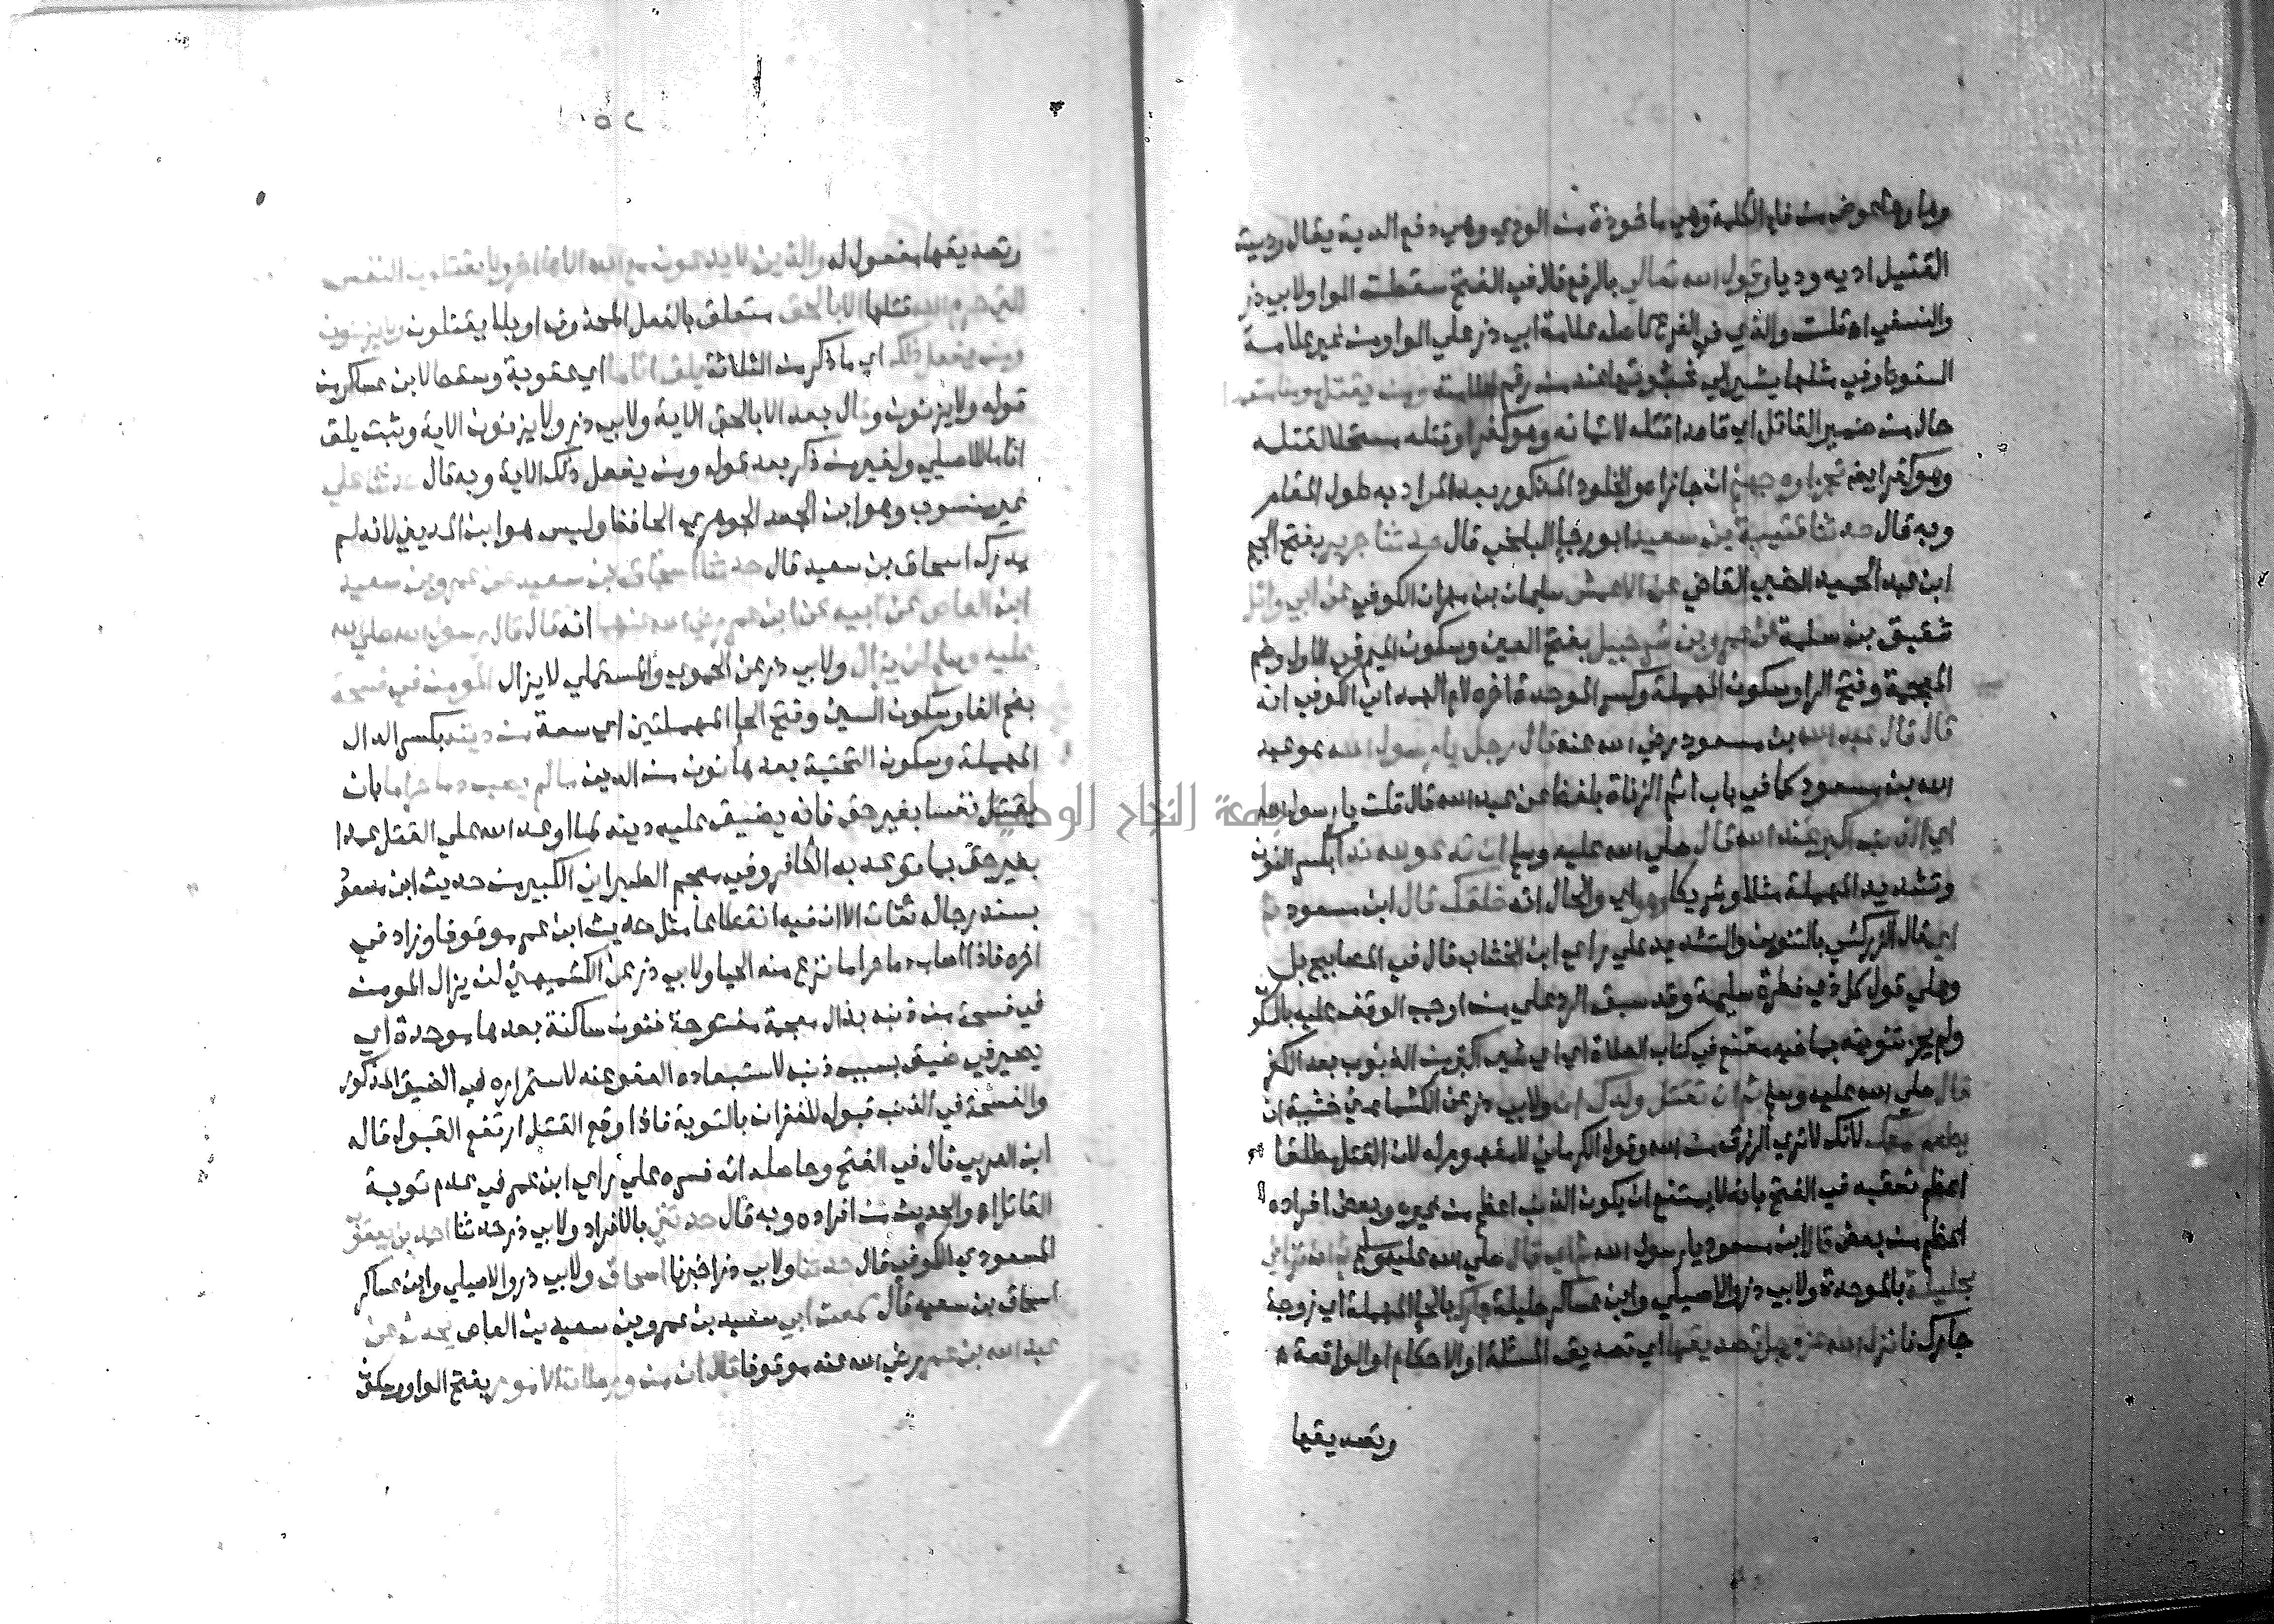 وهاوها عوض من فاء الكلمة وهي ماخوذة من الودي وهي دفع الدية يقال وديت
القتيل اديه وديا وقول الله تعالي بالرفع قال في الفتح سقطت الواو لابي ذر
والنسفي اه قلت والذي في الفرع كاصله علامة ابي ذر علي الواو من غير علامة
السقوط وفي مثلها يشير الي ثبوتها عند من رقم علامته ومن يقتل مومنا متعمدا
حال من ضمير القاتل اي قاصدا قتله لايمانه وهو كفر او قتله مستحلا لقتله
وهو كفر ايضا فجزاوه جهنم ان جازاه والخلود المذكور بعد المراد به طول المقام
وبه قال حدثنا قتيبة بن سعيد ابو رجا البلخي قال حدثنا جرير بفتح الجيم
ابن عبد الحميد الضبي القاضي عن الاعمش سليمان بن مهران الكوفي عن ابي وائل
شقيق بن سلمة عن عمرو بن شرحبيل بفتح العين وسكون الميم في الاول وضم
المعجمة وفتح الرا وسكون المهملة وكسر الموحدة اخره لام الهمداني الكوفي انه
قال قال عبد الله بن مسعود رضي الله عنه قال رجل يا رسول الله هو عبد
الله بن مسعود كما في باب اثم الزناة بلفظ عن عبد الله قال قلت يا رسول الله
اي الذنب اكبر عند الله قال صلي الله عليه وسلم ان تدعو لله ندا بكسر النون
وتشديد المهملة مثلا وشريكا وهو اي والحال انه خلقك قال ابن مسعود ثم
اي قال الزركشي بالتنوين والتشديد علي راي ابن الخشاب قال في المصابيح بل
وعلي قول كل ذي فطرة سليمة وقد سبق الرد علي من اوجب الوقف عليه بالسكون
ولم يجز تنوينه بما فيه مقنع في كتاب الصلاة اي اي شي اكبر من الذنوب بعد الكفر
قال صلي الله عليه وسلم ثم ان تقتل ولدك ان ولابي ذر عن الكشميهني خشية ان
يطعم معك لانك لا تري الرزق من الله وقول الكرماني لا مفهوم له لان القتل مطلقا
اعظم تعقبه في الفتح بانه لا يمتنع ان يكون الذنب اعظم من غيره وبعض افراده
اعظم من بعض قال ابن مسعود يا رسول الله ثم اي قال صلي الله عليه وسلم ثم ان تزاني
بحليلة بالموحدة ولابي ذر والاصيلي وابن عساكر حليلة جارك بالحا المهملة اي زوجة
جارك فانزل الله عز وجل تصديقها اي تصديق المسئلة او الاحكام او الواقعة
وتصديقها
٥٢
وتصديقها مفعول له والذين لا يدعون مع الله الها اخر ولا يقتلون النفس
التي حرم الله قتلها الا بالحق متعلق بالفعل المحذوف او بلا يقتلون ولا يزنون
ومن يفعل ذلك اي ما ذكر من الثلاثة يلق اثاما اي عقوبة وسقط لابن عساكر من
قوله ولا يزنون وقال بعد الا بالحق الاية ولابي ذر ولا يزنون الاية وثبت يلق
اثاما للاصيلي ولغير من ذكر بعد قوله ومن يفعل ذلك الاية وبه قال حدثنا علي
غير منسوب وهو ابن الجعد الجوهري الحافظ وليس هو ابن المديني لانه لم
يدرك اسحاق بن سعيد قال حدثنا اسحاق بن سعيد عن عمرو بن سعيد
ابن العاص عن ابيه عن ابن عمر رضي الله عنهما انه قال قال رسول الله صلي الله
عليه وسلم لن يزال ولابي ذر عن الحموي والمستملي لا يزال المومن في فسحة
بضم الفا وسكون السين وفتح الحا المهملتين اي سعة من دينه بكسر الدال
المهملة وسكون التحتية بعدها نون من الدين ما لم يصب دما حراما بان
يقتل نفسا بغير حق فانه يضيق عليه دينه لما اوعد الله علي القتل عمدا
بغير حق بما توعد به الكافر وفي معجم الطبراني الكبير من حديث ابن مسعود
بسند رجاله ثقات الا ان فيه انقطاعا مثل حديث ابن عمر موقوفا وزاد في
اخره فاذا اصاب دما حراما نزع منه الحيا ولابي ذر عن الكشميهني لن يزال المومن
في فسحة من ذنبه بذال معجمة مفتوحة فنون ساكنة بعدها موحدة اي
يصير في ضيق بسبب ذنبه لاستبعاده العفو عنه لاستمراره في الضيق المذكور
والفسحة في الذنب قبوله للغفران بالتوبة فاذا وقع القتل ارتفع القبول قاله
ابن العربي قال في الفتح وحاصله انه فسره علي راي ابن عمر في عدم توبة
القاتل اه والحديث من افراده وبه قال حدثني بالافراد ولابي ذر حدثنا احمد بن يعقوب
المسعودي الكوفي قال حدثنا ولابي ذر اخبرنا اسحاق ولابي ذر والاصيلي وابن عساكر
اسحاق بن سعيد قال سمعت ابي سعيد بن عمرو بن سعيد بن العاص يحدث عن
عبد الله بن عمر رضي الله عنه موقوفا قال ان من ورطات الامور بفتح الواو وسكون